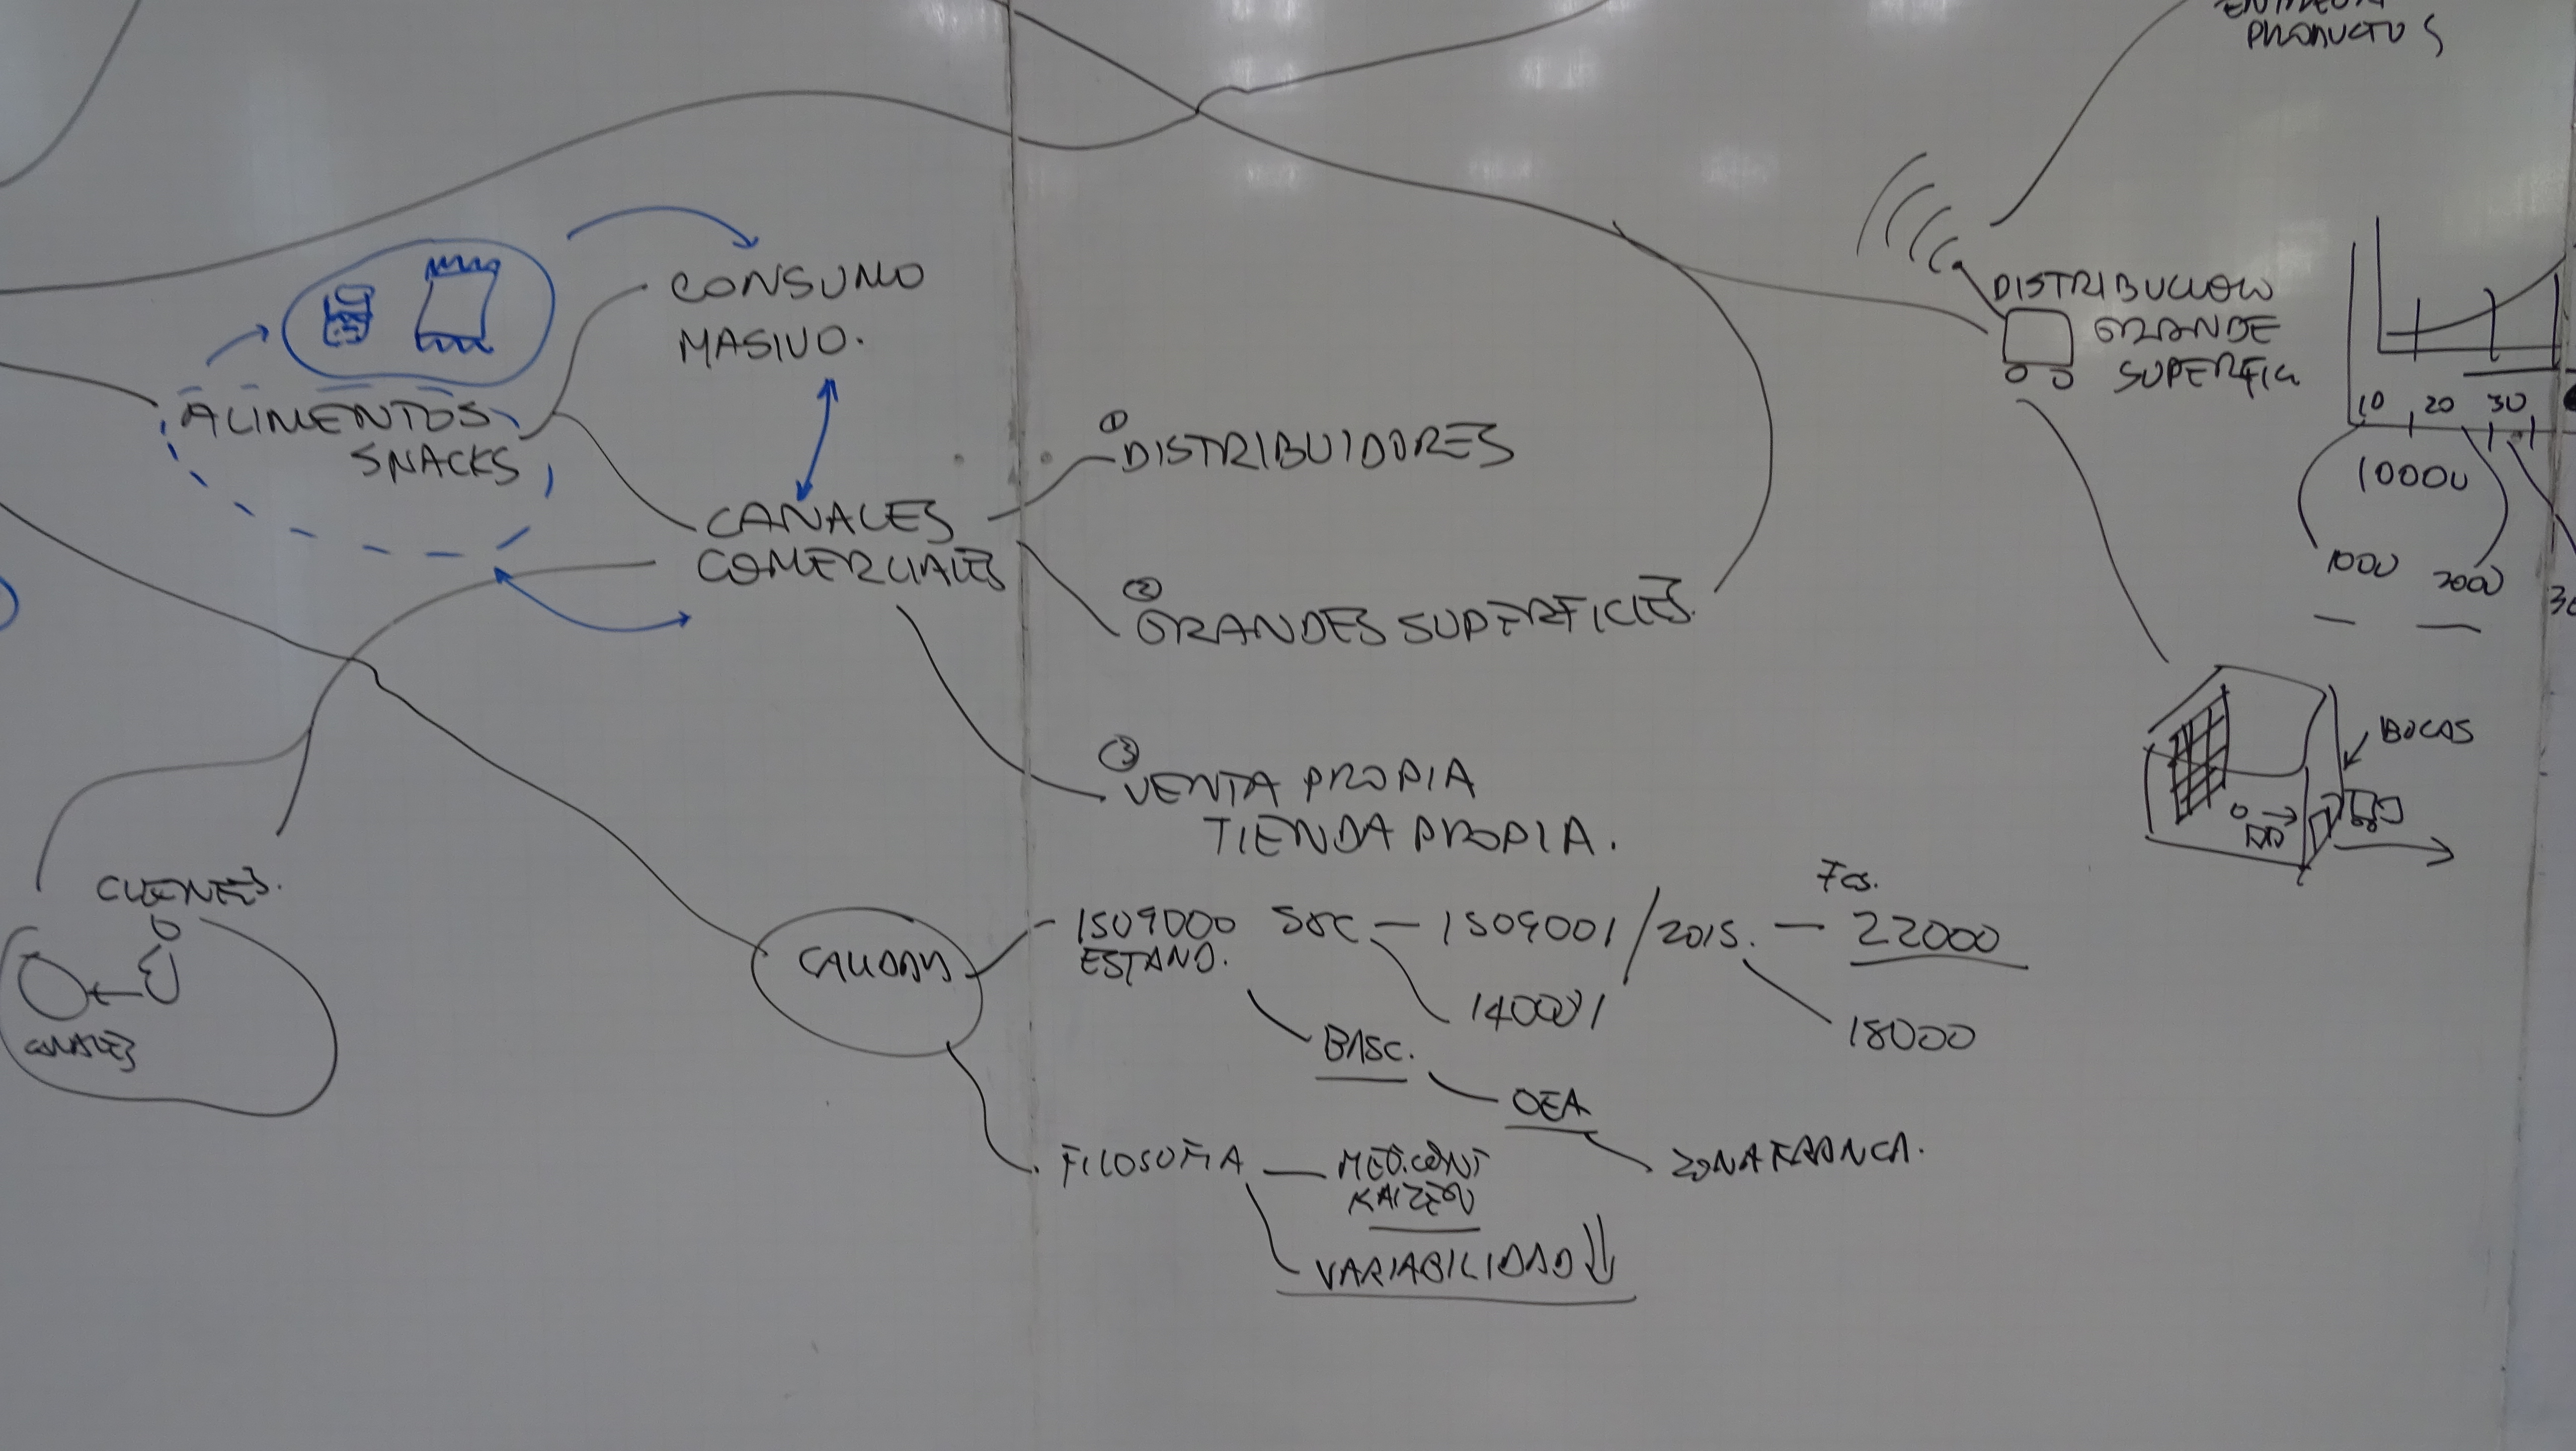 PRODUCTOS
CONSUMO
MASIVO.
ALIMENTOS
SNACKS
CANALES
COMERCIALES
①
DISTRIBUIDORES
②
GRANDES SUPERFICIES.
③
VENTA PROPIA
TIENDA PROPIA.
DISTRIBUCION
GRANDE
SUPERFICI
10 20 30
10000
1000 2000
BOCAS
CLIENTES.
CANALES
CALIDAD
ISO9000 SGC — ISO9001/2015. — 22000
ESTAND.
14001
18000
BASC.
OEA
ZONA FRANCA.
FILOSOFIA — MEJ.CONT
KAIZEN
VARIABILIDAD